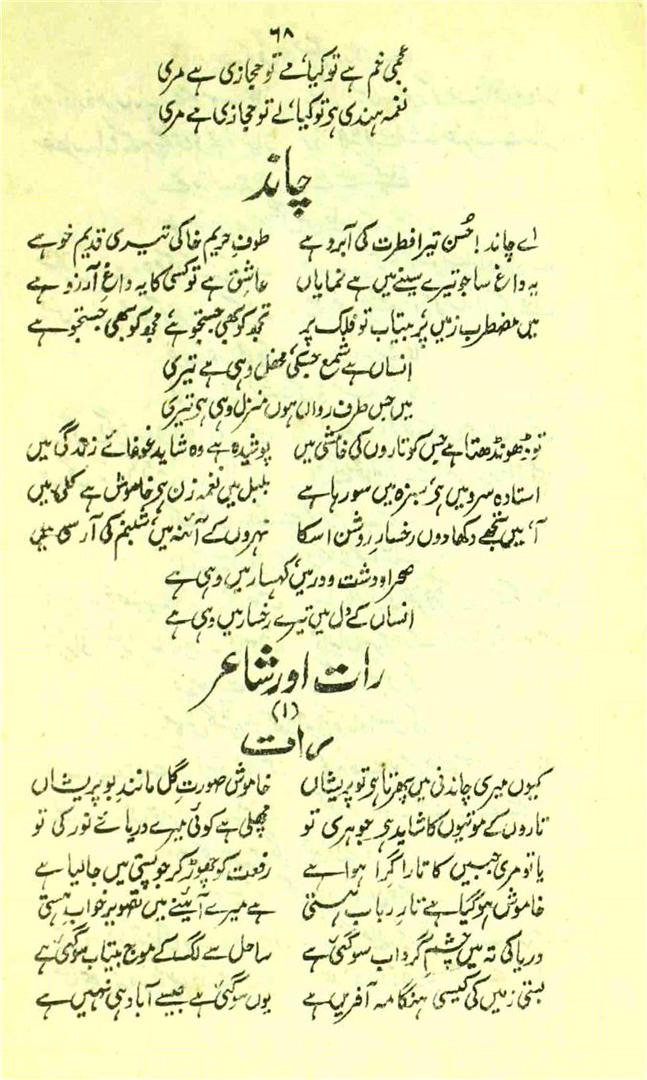 ۶۸
عجمی خم ہے تو کیا، مے تو حجازی ہے مری
نغمہ ہندی ہو تو کیا، لے تو حجازی ہے مری
چاند
اے چاند! حُسن تیرا فطرت کی آبرو ہے طوفِ حریمِ خاکی تیری قدیم خو ہے
یہ داغ سا جو تیرے سینے میں ہے نمایاں عاشق ہے تو کسی کا یہ داغِ آرزو ہے
میں مضطرب زمیں پر، بیتاب تو فلک پر تجھ کو بھی جستجو ہے، مجھ کو بھی جستجو ہے
انساں ہے شمع جسکی، محفل وہی ہے تیری
میں جس طرف رواں ہوں منزل وہی ہو تیری
تو ڈھونڈھتا ہے جس کو تاروں کی خامشی میں پوشیدہ ہے وہ شاید غوغائے زندگی میں
استادہ سرو میں ہو، سبزہ میں سو رہا ہے بلبل میں نغمہ زن ہو، خاموش ہے کلی میں
آ، میں تجھے دکھا دوں رخسارِ روشن اسکا نہروں کے آئنہ میں، شبنم کی آرسی میں
صحرا و دشت و در میں، کہسار میں وہی ہے
انساں کے دل میں تیرے رخسار میں وہی ہے
رات اور شاعر
(۱)
رات
کیوں میری چاندنی میں پھرتا ہو تو پریشاں خاموش صورتِ گل مانندِ بو پریشاں
تاروں کے موتیوں کا شاید ہو جوہری تو مچھلی ہے کوئی میرے دریائے نور کی تو
یا تو مری جبیں کا تارا گرا ہوا ہے رفعت کو چھوڑ کر جو پستی میں جا لیا ہے
خاموش ہو گیا ہے تارِ ربابِ ہستی ہے میرے آئینے میں تصویرِ خوابِ ہستی
دریا کی تہ میں چشمِ گرداب سو گئی ہے ساحل سے لگ کے موجِ بیتاب سو گئی ہے
بستی زمیں کی کیسی ہنگامہ آفریں ہے یوں سو گئی ہے جیسے آباد ہی نہیں ہے